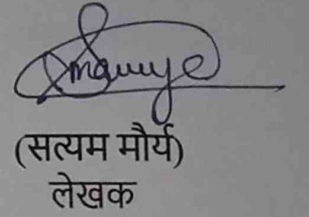 (सत्यम मौर्य)
लेखक